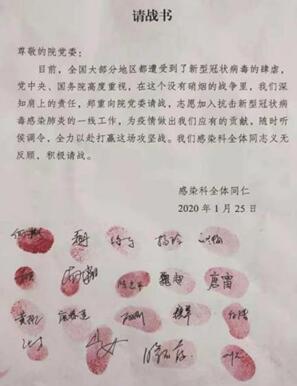 请战书
尊敬的院党委：
目前，全国大部分地区都遭受到了新型冠状病毒的肆虐，
党中央、国务院高度重视，在这个没有硝烟的战争里，我们深
知肩上的责任，郑重向院党委请战，志愿加入抗击新型冠状病
毒感染肺炎的一线工作，为疫情做出我们应有的贡献，随时听
侯调令，全力以赴打赢这场攻坚战。我们感染科全体同志义无
反顾，积极请战。
感染科全体同仁
2020 年 1 月 25 日